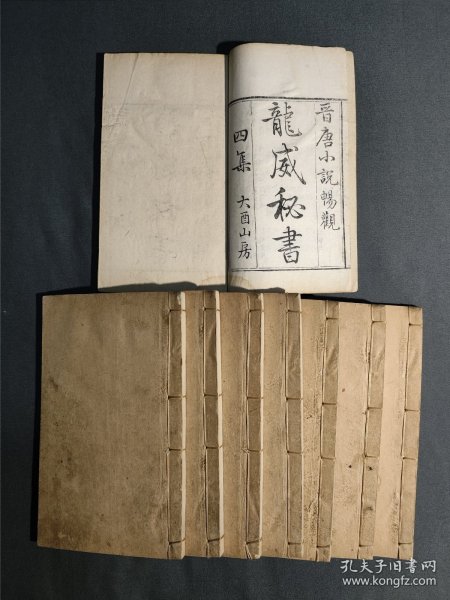 晋唐小說暢觀
龍威秘書
四集
大酉山房
孔夫子旧书网
www.kongfz.com